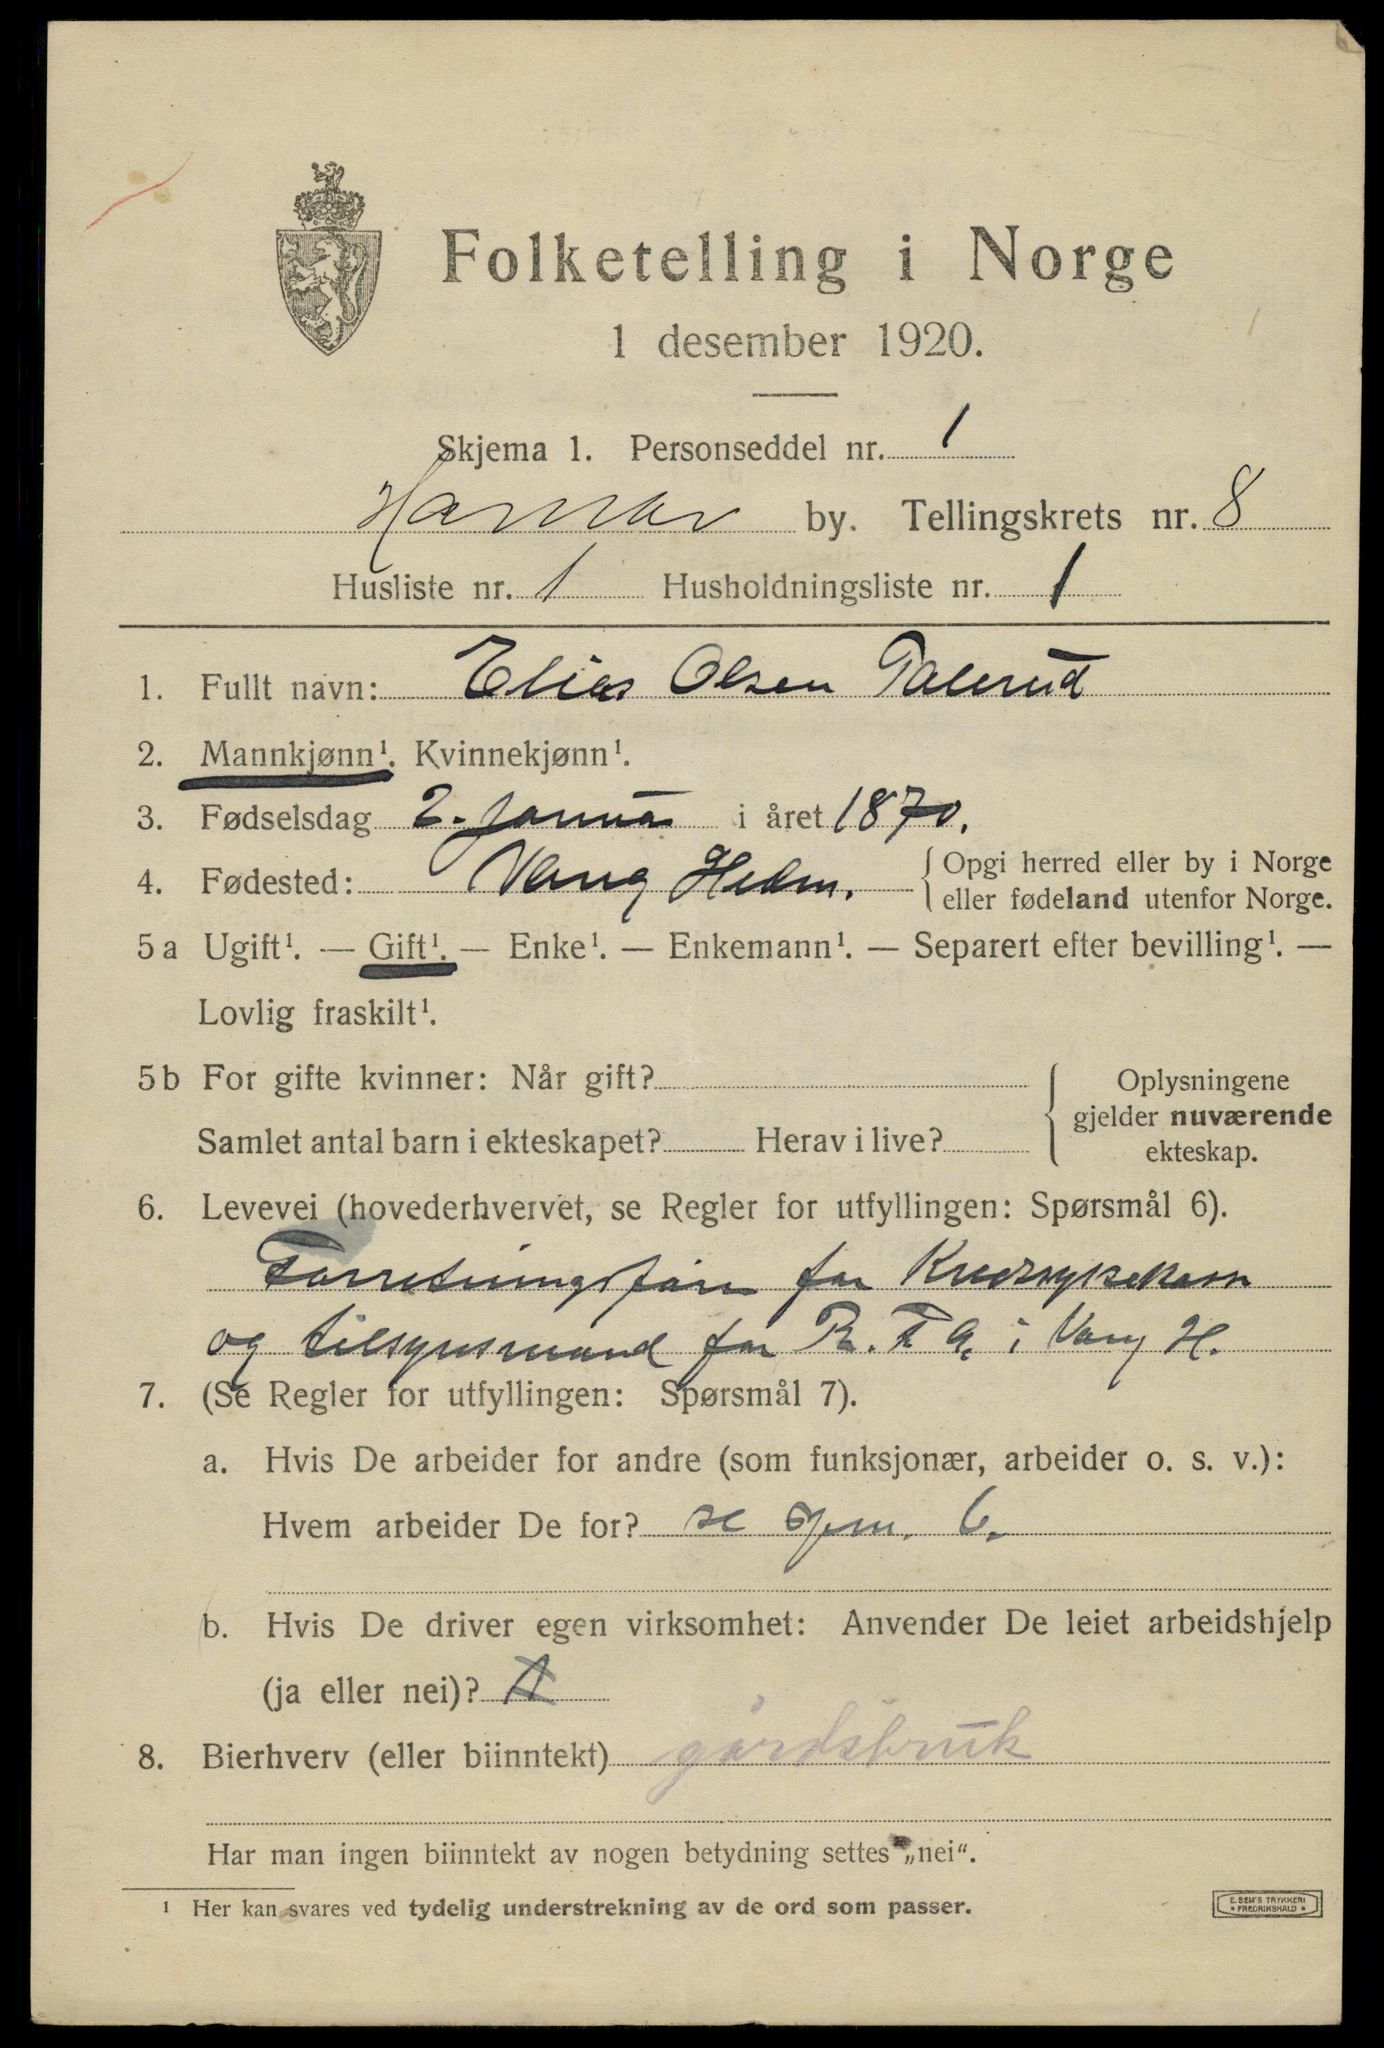 Folketelling i Norge
1 desember 1920.
Skjema 1. Personseddel nr. 1
Hamar by. Tellingskrets nr. 8
Husliste nr. 1 Husholdningsliste nr. 1
1. Fullt navn: Elias Olsen Talerud
2. Mannkjønn¹. Kvinnekjønn¹.
3. Fødselsdag 2. januar i året 1870.
4. Fødested: Vang Hedm. { Opgi herred eller by i Norge
eller fødeland utenfor Norge.
5a Ugift¹. — Gift¹. — Enke¹. — Enkemann¹. — Separert efter bevilling¹. —
Lovlig fraskilt¹.
5b For gifte kvinner: Når gift?
Samlet antal barn i ekteskapet? Herav i live?
Oplysningene
gjelder nuværende
ekteskap.
6. Levevei (hovederhvervet, se Regler for utfyllingen: Spørsmål 6).
Forretningsfører for Kredssykekasse
og tilsynsmand for R. F. A. i Vang H.
7. (Se Regler for utfyllingen: Spørsmål 7).
a. Hvis De arbeider for andre (som funksjonær, arbeider o. s. v.):
Hvem arbeider De for? se spm. 6.
b. Hvis De driver egen virksomhet: Anvender De leiet arbeidshjelp
(ja eller nei)?
8. Bierhverv (eller biinntekt) gårdsbruk
Har man ingen biinntekt av nogen betydning settes „nei“.
¹ Her kan svares ved tydelig understrekning av de ord som passer.
E. SEM'S TRYKKERI
• FREDRIKSHALD •